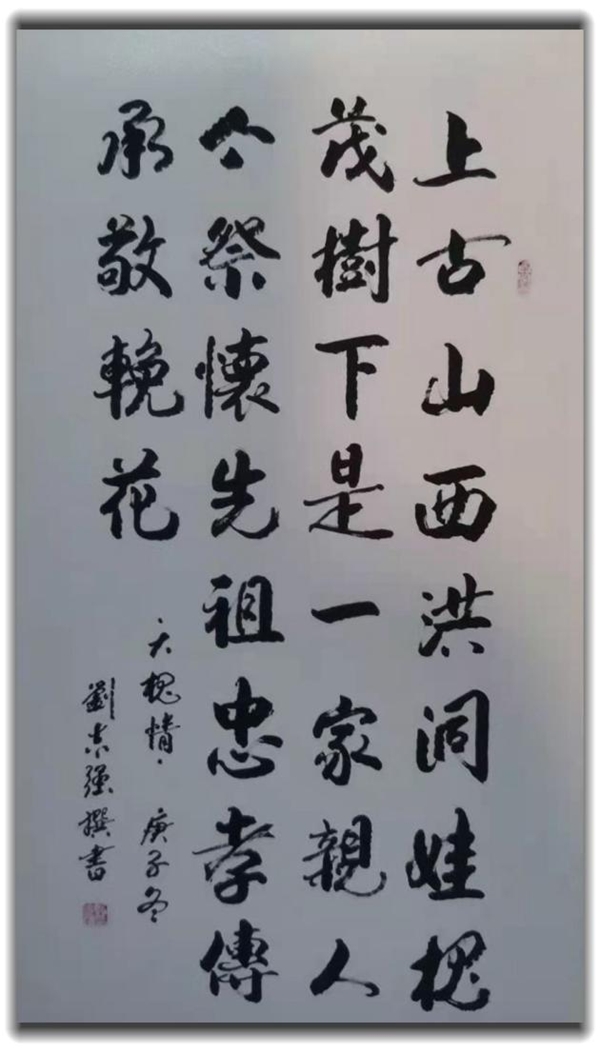 上古山西洪洞娃槐
茂樹下是一家親人
今祭懷先祖忠孝傳
承敬輓花
大槐情 庚子冬
劉志强撰書